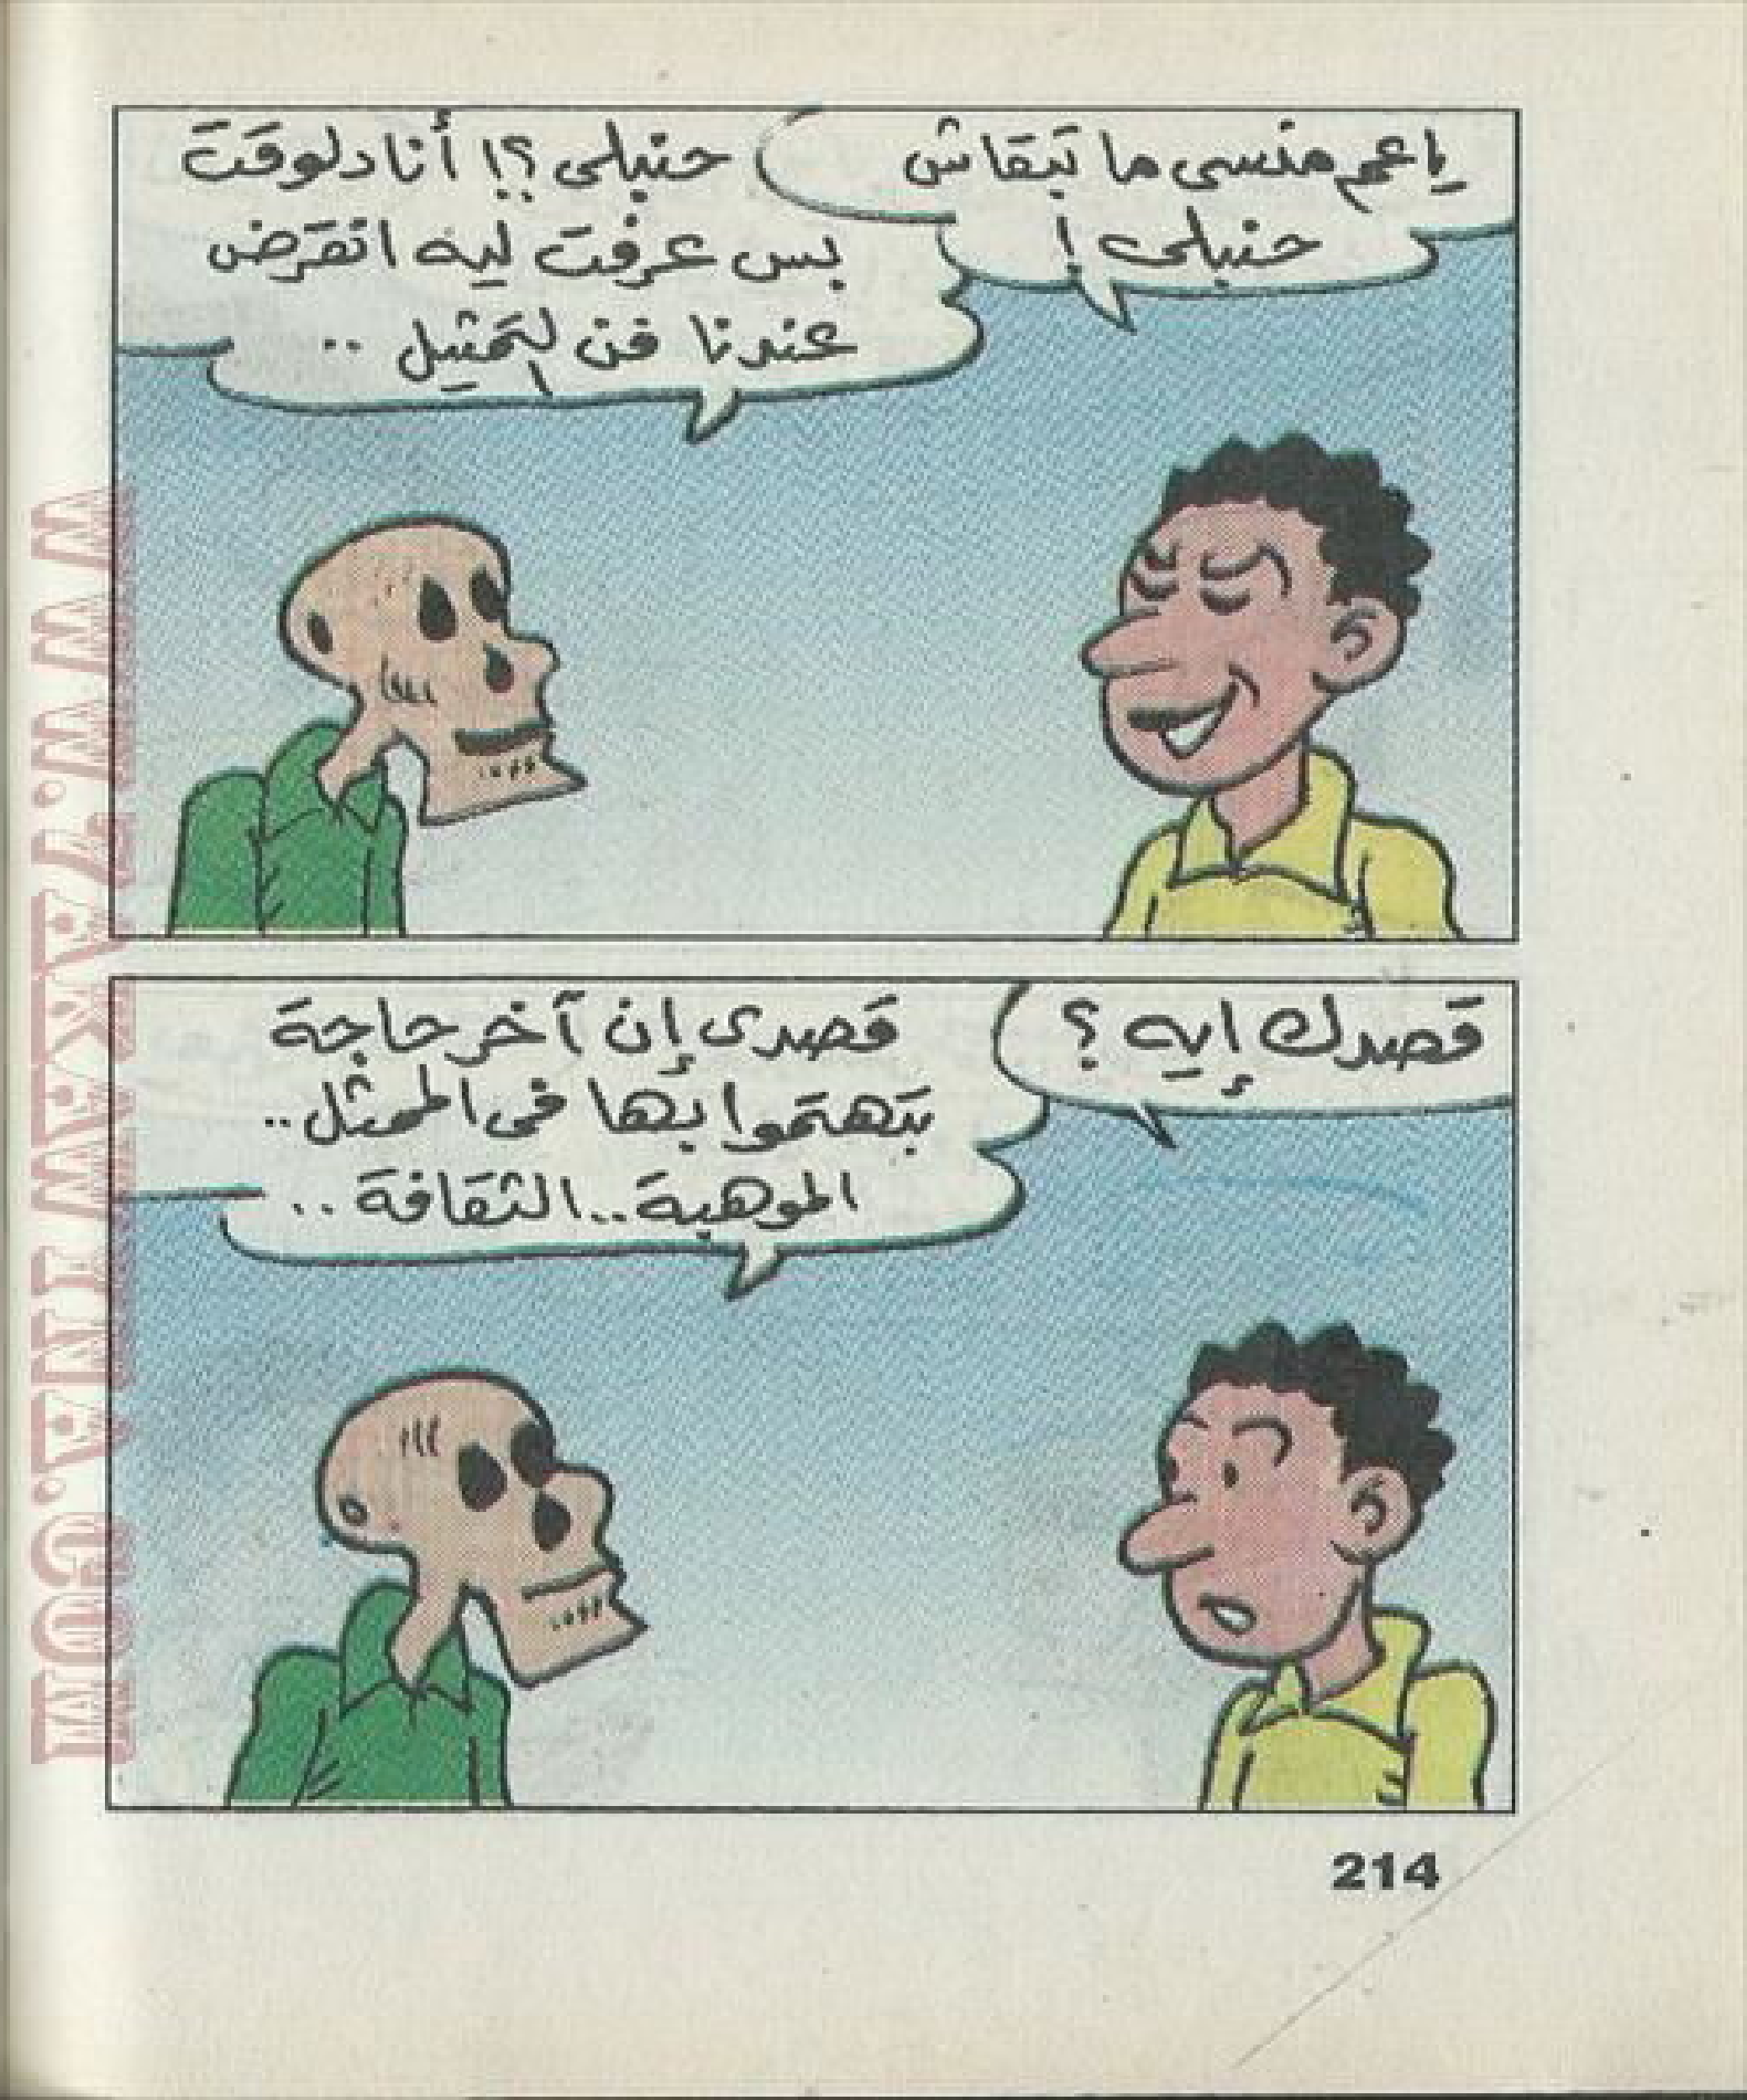 ياعم منسى ما تبقاش
حنبلى !
حنبلى ؟! أنا دلوقت
بس عرفت ليه انقرض
عندنا فن التمثيل ..
قصدك إيه ؟
قصدى إن آخر حاجة
بتهتموا بها فى الممثل ..
الموهبة .. الثقافة ..
214